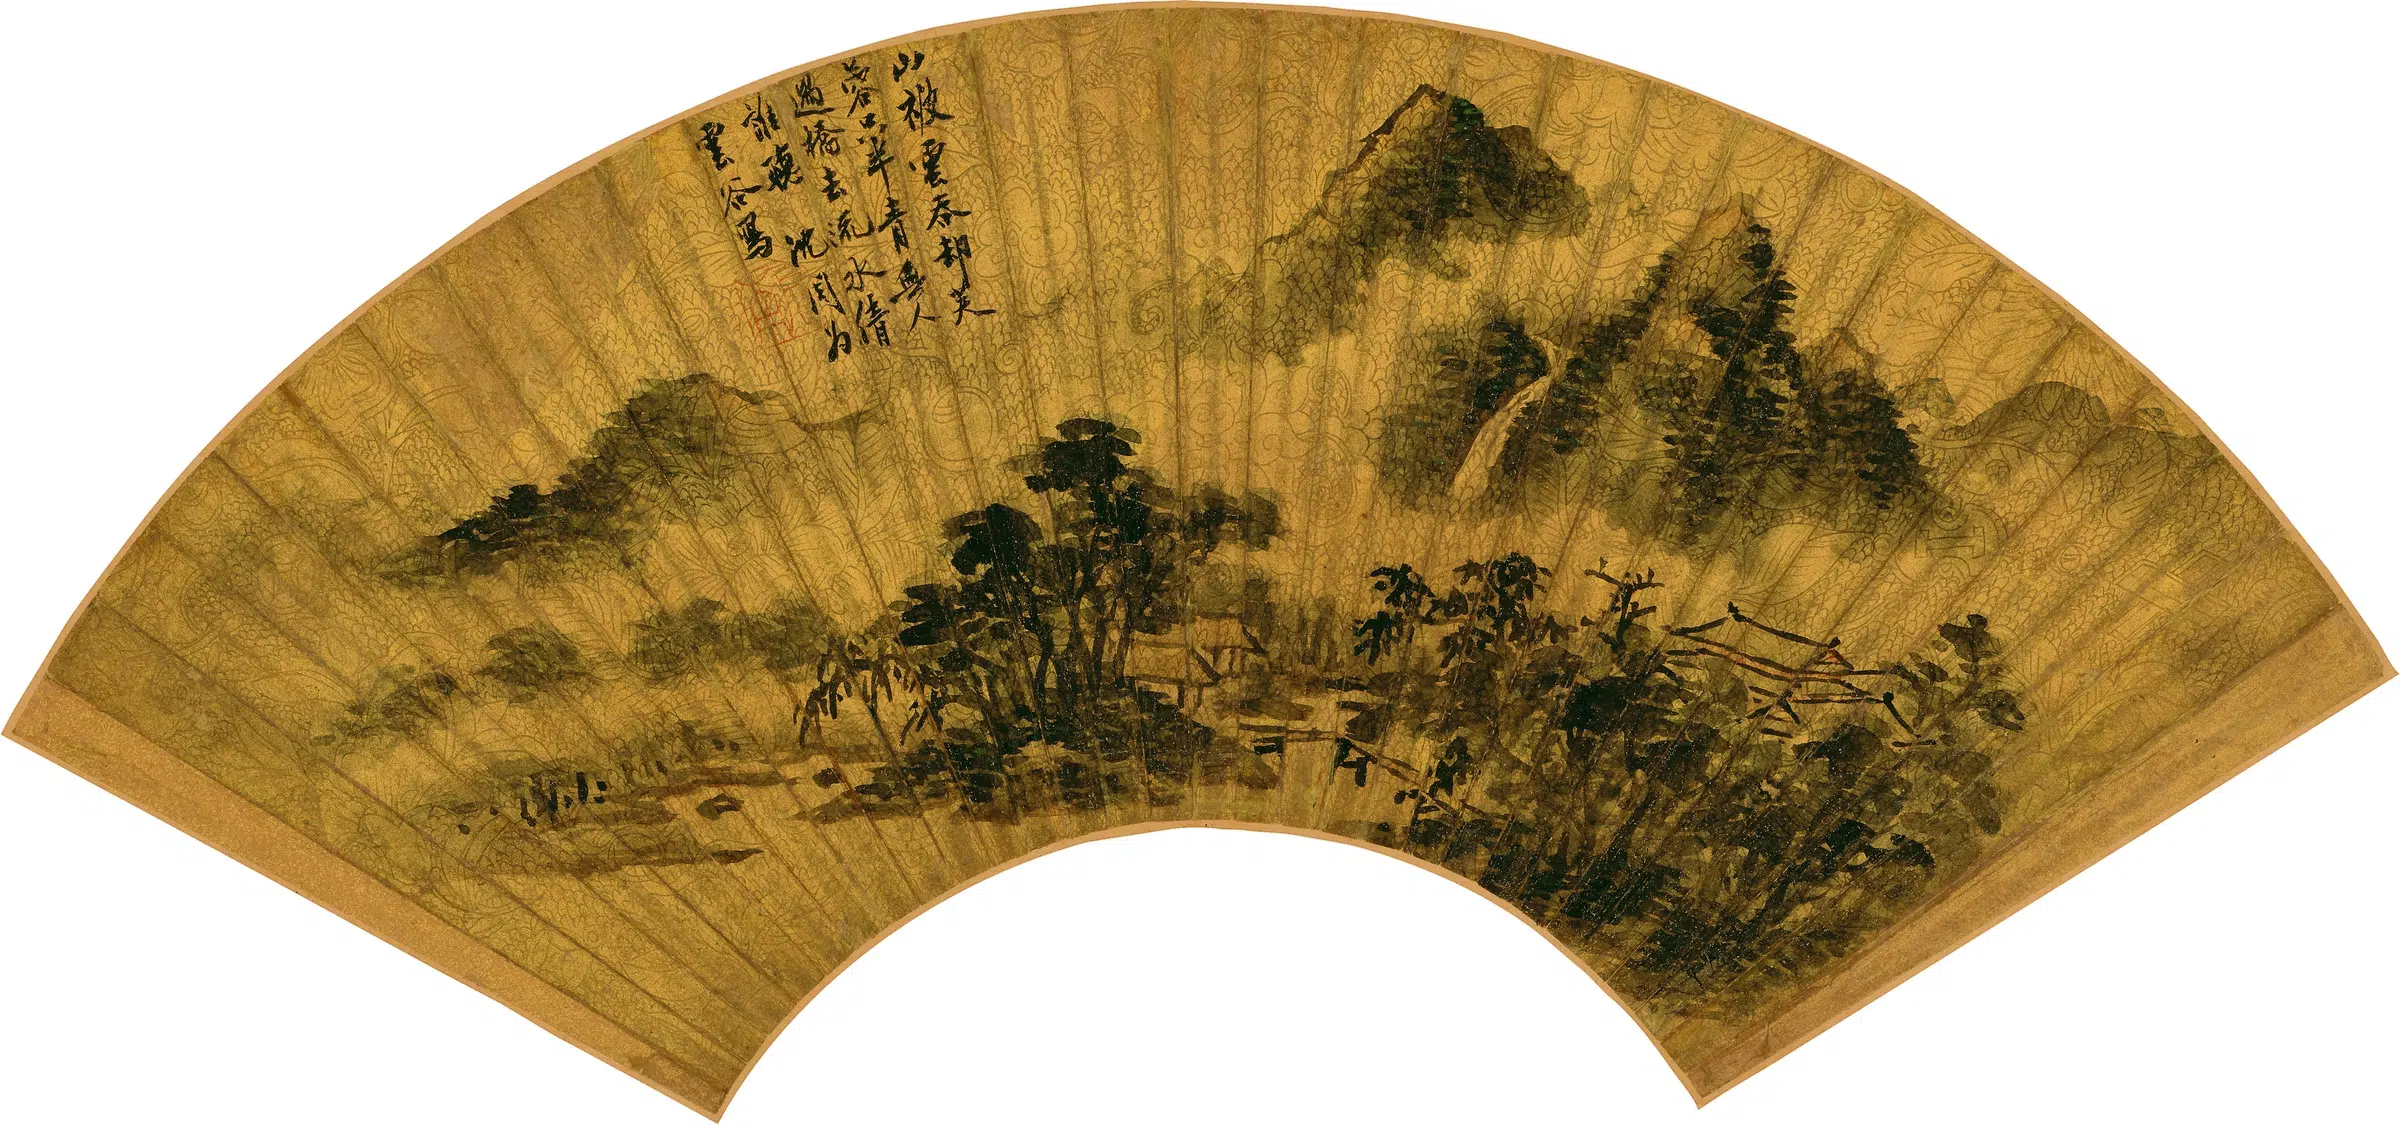 山被雲吞却芙
蓉只半青無人
過橋去流水倩
誰聽 沈周為
雲谷寫